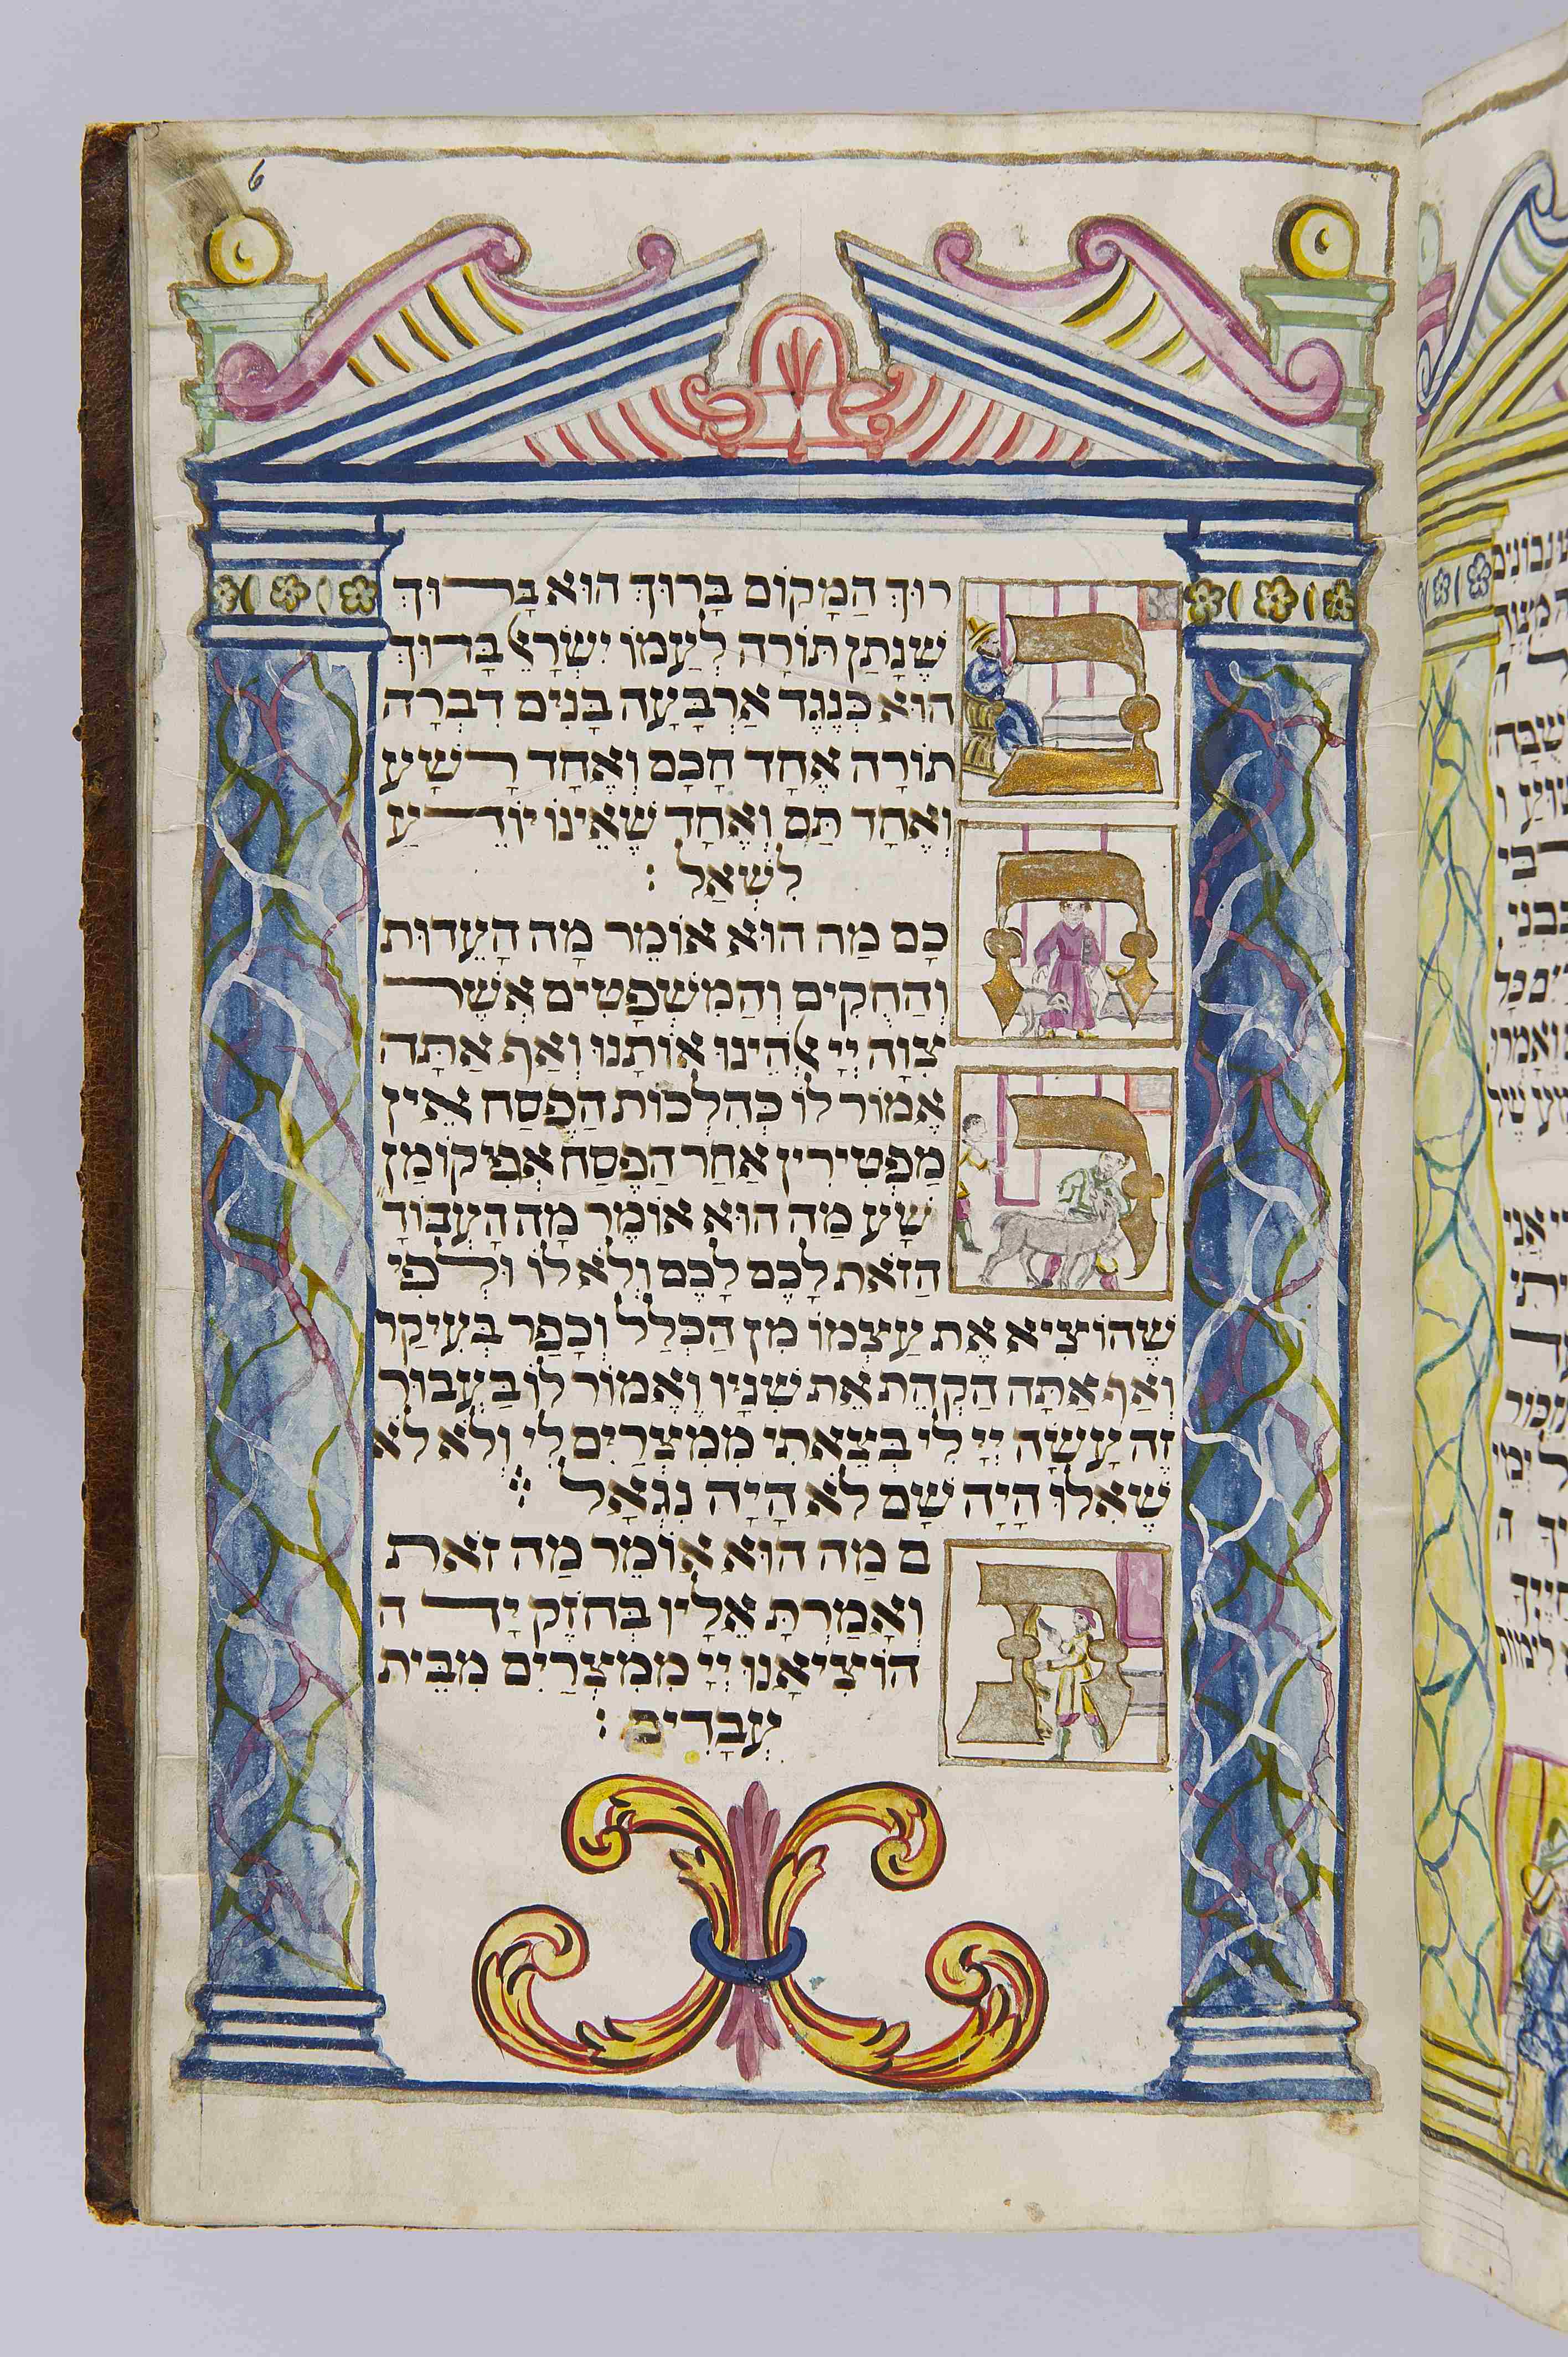 6
ברוּךְ הַמָּקוֹם בָּרוּךְ הוּא בָּרוּךְ
שֶׁנָתַן תּוֹרָה לְעַמוֹ יִשְׂרָאֵל בָּרוּךְ
הוּא כְּנֶגֶד אַרְבָּעָה בָּנִים דִבְרָה
תוֹרָה אֶחָד חָכָם וְאֶחָד רָשָׁע
וְאֶחָד תַּם וְאֶחָד שֶׁאֵינוֹ יוֹדֵעַ
לִשְׁאַל :
חכָם מַה הוּא אוֹמֵר מָה הָעֵדוּת
וְהַחֻקִים וְהַמִשְׁפָּטִים אֲשֶׁר
צִוָּה יְיָ אֱלֹהֵינוּ אוֹתָנוּ וְאַף אַתָּה
אֱמוֹר לוֹ כְּהִלְכוֹת הַפֶּסַח אֵין
מַפְטִירִין אַחַר הַפֶּסַח אֲפִיקוֹמָן
רשָׁע מַה הוּא אוֹמֵר מָה הָעֲבוֹדָ״
הַזֹאת לָכֶם לָכֶם וְלֹא לוֹ וּלְפִי
שֶׁהוֹצִיא אֶת עַצְמוֹ מִן הַכְּלַל וְכָפַר בְּעִיקַר
וְאַף אַתָּה הַקְהֵת אֶת שִׁנָיו וְאֶמוֹר לוֹ בַּעֲבוּר
זֶה עָשָׂה יְיָ לִי בְּצֵאתִי מִמִצְרַיִם לִי וְלֹא לֹא
שֶׁאִלוּ הָיָה שָׁם לֹא הָיָה נִגְאָל :
תם מַה הוּא אוֹמֵר מַה זֹאת
וְאָמַרְתָּ אֵלָיו בְּחוֹזֶק יָד ה
הוֹצִיאָנוּ יְיָ מִמִצְרַיִם מִבֵּית
עֲבָדִים :